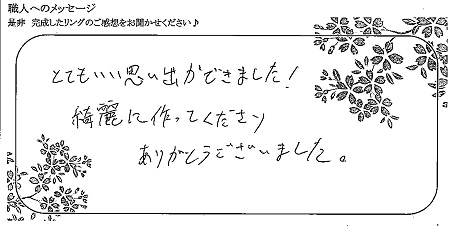 職人へのメッセージ
是非 完成したリングのご感想をお聞かせください♪
とてもいい思い出ができました!
綺麗に作ってくださり
ありがとうございました。